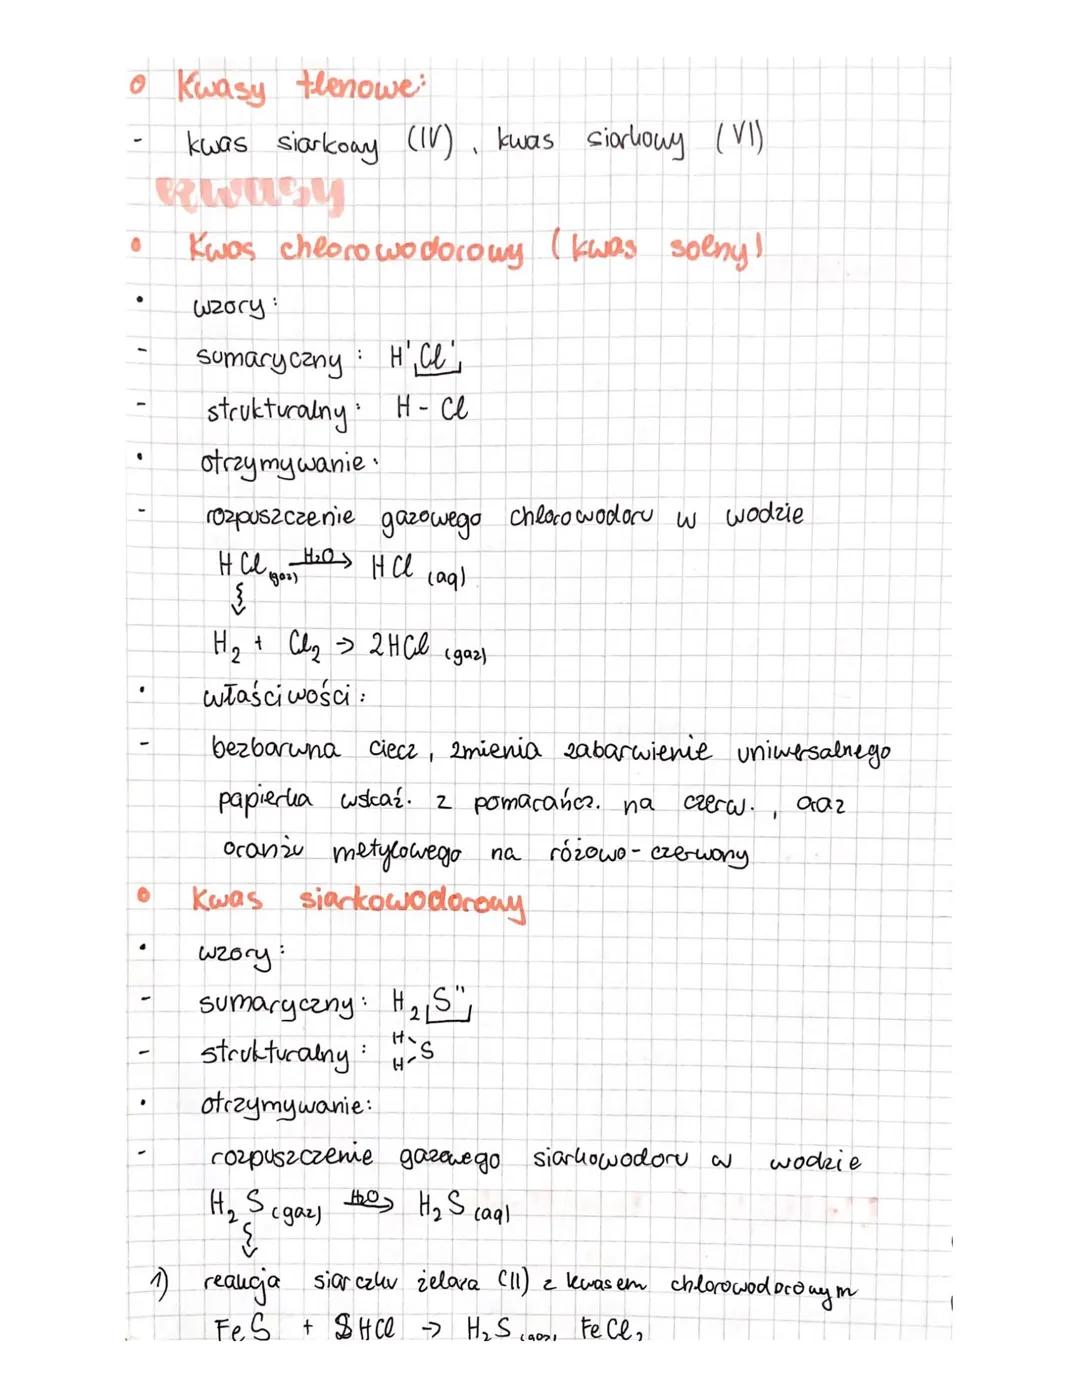 Kwasy tlenowe:
- kwas siarkowy (IV), kwas siarkowy (VI)
Kwasy
Kwas chlorowodorowy (kwas solny)
• wzory:
- sumaryczny: HᴵClᴵ
- strukturalny: H - Cl
• otrzymywanie:
- rozpuszczenie gazowego chlorowodoru w wodzie
HCl (gaz) H₂O→ HCl (aq)
H₂ + Cl₂ → 2HCl (gaz)
• właściwości:
- bezbarwna ciecz, zmienia zabarwienie uniwersalnego
papierka wskaź. z pomarańcz. na czerw., oraz
oranżu metylowego na różowo-czerwony
Kwas siarkowodorowy
• wzory:
- sumaryczny: H₂Sᴵᴵ
- strukturalny: H H S
• otrzymywanie:
- rozpuszczenie gazowego siarkowodoru w wodzie
H₂S (gaz) H₂O→ H₂S (aq)
1) reakcja siarczku żelaza (II) z kwasem chlorowodorowym
FeS + 2HCl → H₂S (gaz) FeCl₂